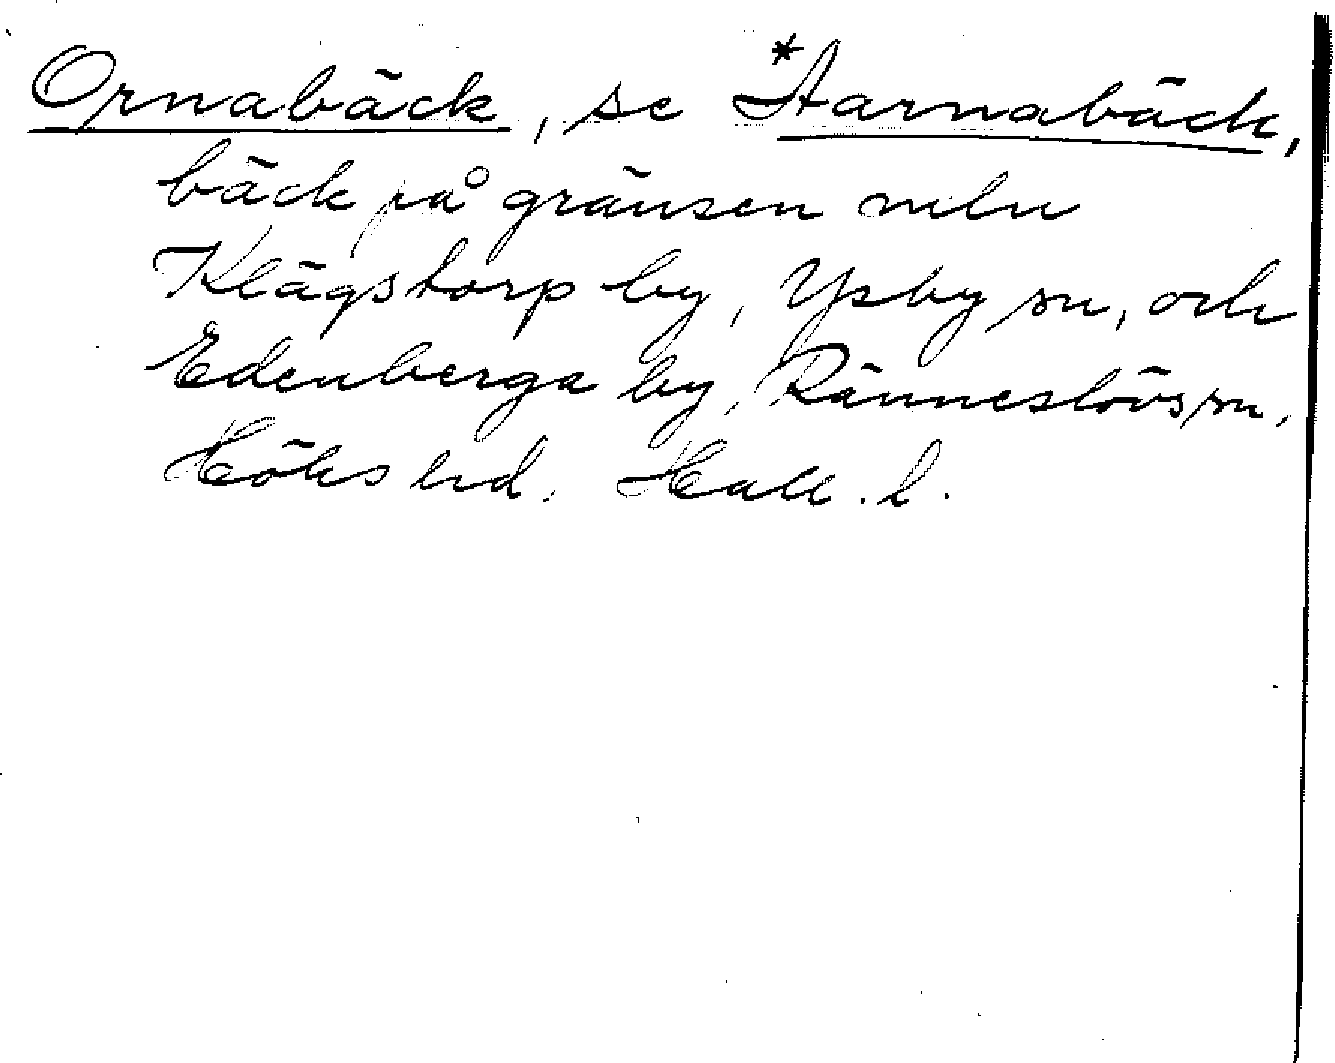 Ornabäck, se
bäck på gränsen mln
Klägstorp by, Ysby sn, och
Edenberga by, Ränneslövs sn,
Höks hd. Hall. l.